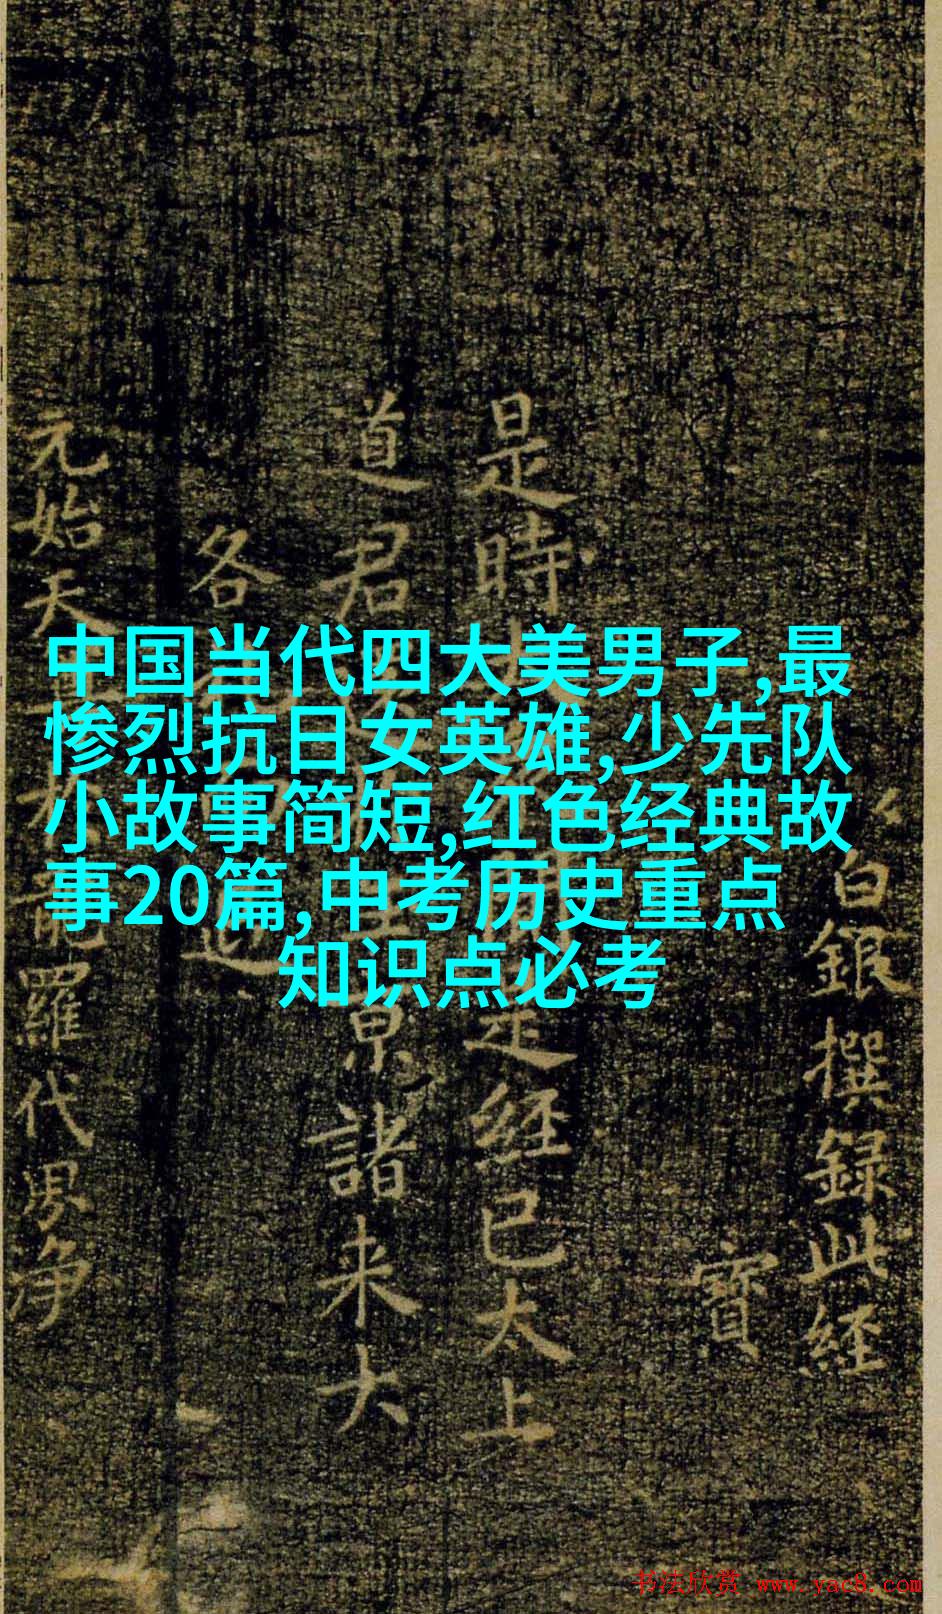 中国当代四大美男子,最
惨烈抗日女英雄,少先队
小故事简短,红色经典故
事20篇,中考历史重点
知识点必考
白銀撰録此經
寶
是時
是經已太上
道君
京諸来大
各
元始天
羅代界净
书法欣赏 www.yac8.com